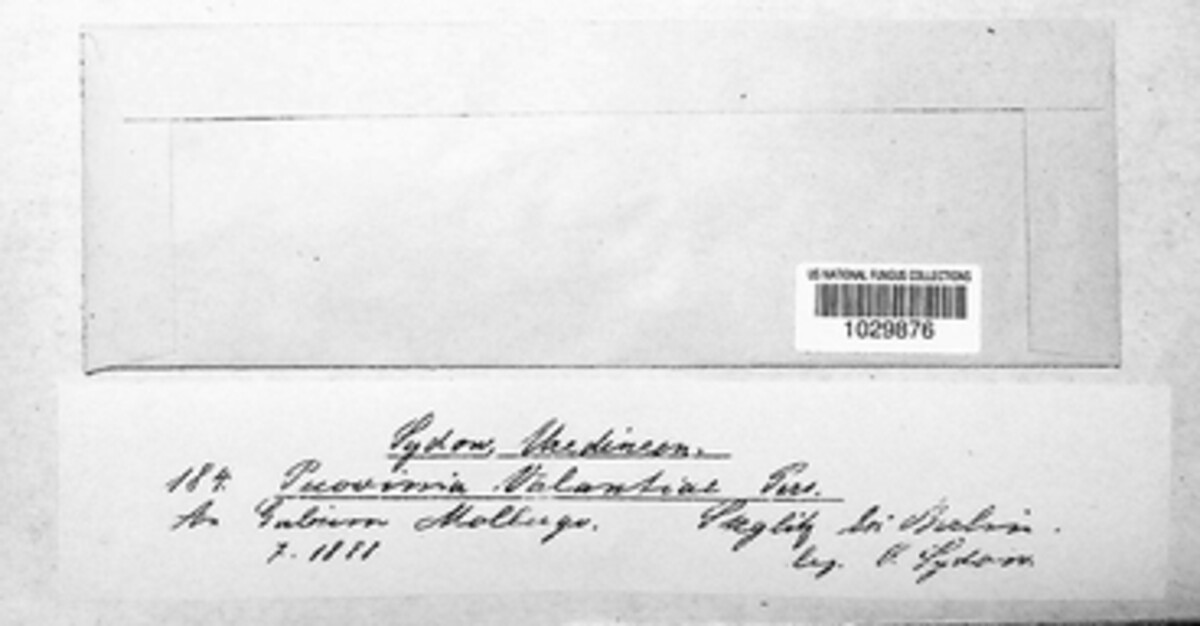 US NATIONAL FUNGUS COLLECTIONS
1029876
Sydow, Uredineen.
184. Puccinia Valantiae Pers.
An Galium Mollugo. Steglitz bei Berlin.
7. 1881 leg. P. Sydow.